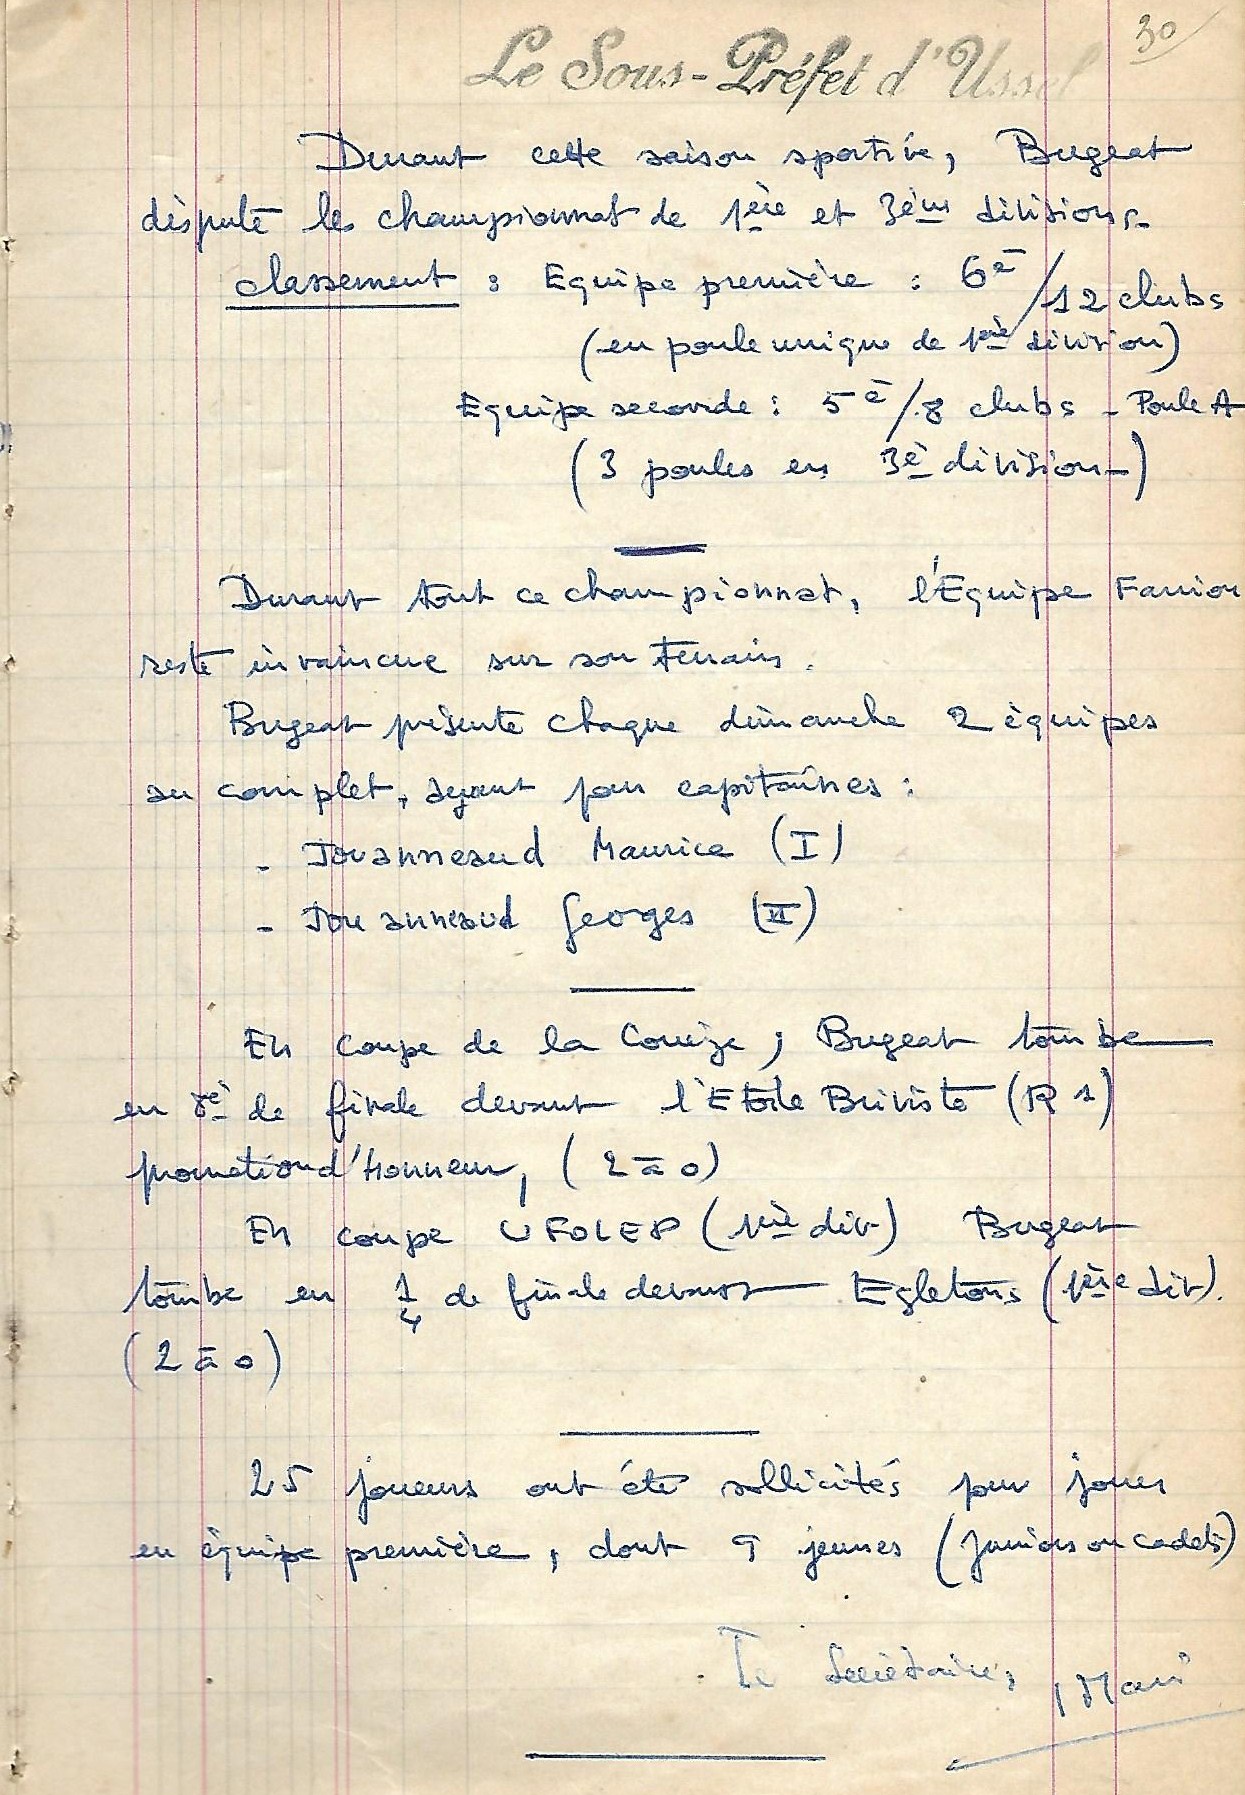 30
Le Sous-Préfet d'Ussel
Durant cette saison sportive, Bugeat
dispute les championnat de 1ère et 3ème divisions.
classement : Equipe première : 6è/12 clubs
(en poule unique de 1ère division)
Equipe seconde : 5è/8 clubs - Poule A
(3 poules en 3è division-)
Durant tout ce championnat, l'Equipe Fanion
reste invaincue sur son terrain.
Bugeat présente chaque dimanche 2 équipes
au complet, ayant pour capitaines :
- Jouanneaud Maurice (I)
- Jouanneaud Georges (II)
En coupe de la Corrèze, Bugeat tombe
en 8è de finale devant l'Etoile Briviste (R1)
promotion d'Honneur, (2 à 0)
En coupe UFOLEP (1ère div) Bugeat
tombe en 1/4 de finale devant Egletons (1ère div).
(2 à 0)
25 joueurs ont été sollicités pour jouer
en équipe première, dont 9 jeunes (juniors ou cadets)
Le Secrétaire,